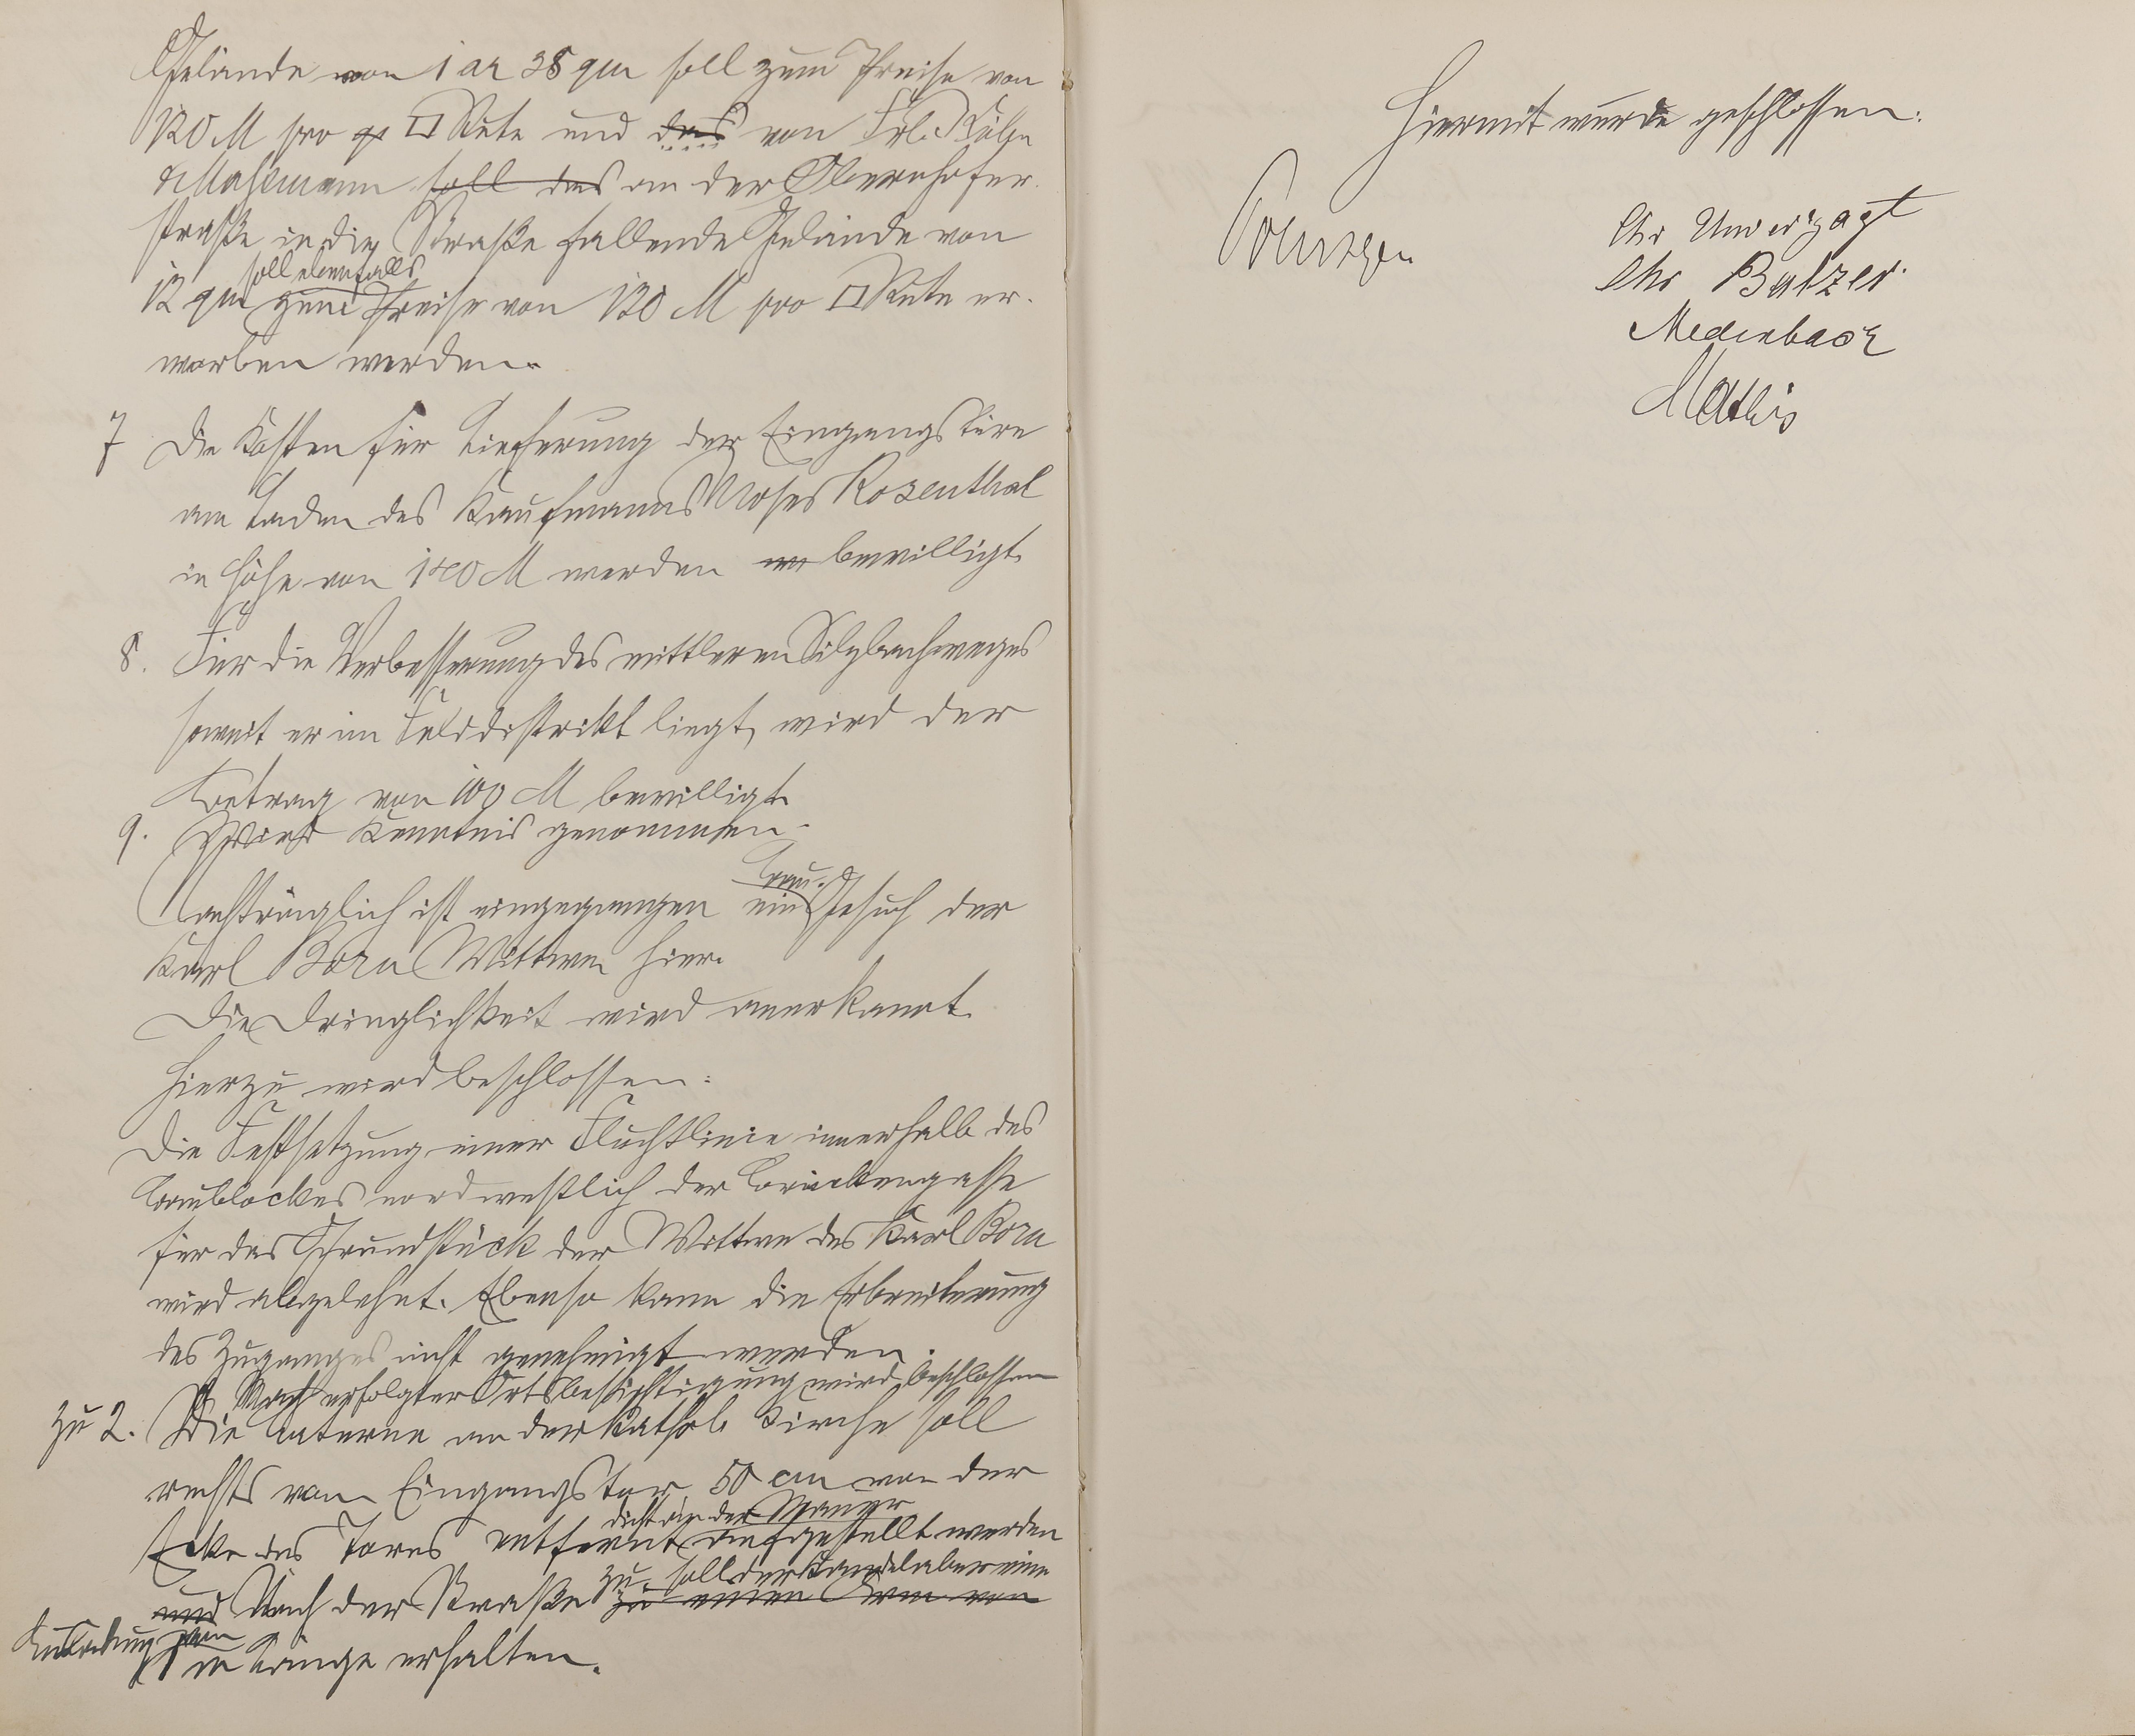 Gelände von 1 ar 38 qm soll zum Preise von
120 M pro □ Rute und das von Frl. Kühn
an der Obernhofer-
straße in die Straße fallende Gelände von
12 qm soll ebenfalls zum Preise von 120 M pro □ Rute er-
worben werden.
7 Die Kosten für Lieferung der Eingangstüre
am Laden des Kaufmanns Moses Rosenthal
in Höhe von 180 M werden bewilligt.
8. Für die Verbesserung des mittleren Silzbachweges
soweit er im Felddistrikt liegt, wird der
Betrag von 100 M bewilligt.
9. Wird Kenntnis genommen.
Nachträglich ist eingegangen ein Bau-Gesuch der
Karl Born Wittwe hier.
Die Dringlichkeit wird anerkannt.
Hierzu wird beschlossen:
Die Festsetzung einer Fluchtlinie innerhalb des
Baublockes nordwestlich der Brückengasse
für das Grundstück der Wittwe des Karl Born
wird abgelehnt. Ebenso kann die Erbreiterung
des Zuganges nicht genehmigt werden.
Nach erfolgter Ortsbesichtigung wird beschlossen
zu 2. Die Laterne an der kathol. Kirche soll
rechts vom Eingangstor 50 cm von der
Ecke des Tores entfernt dicht an der Mauer aufgestellt werden
und Nach der Straße zu soll der Kandelaber eine
Ausladung von
1 m Länge erhalten.
Hiermit wurde geschlossen:
Chr Unverzagt
Chr Balzer
Medenbach
Mathis